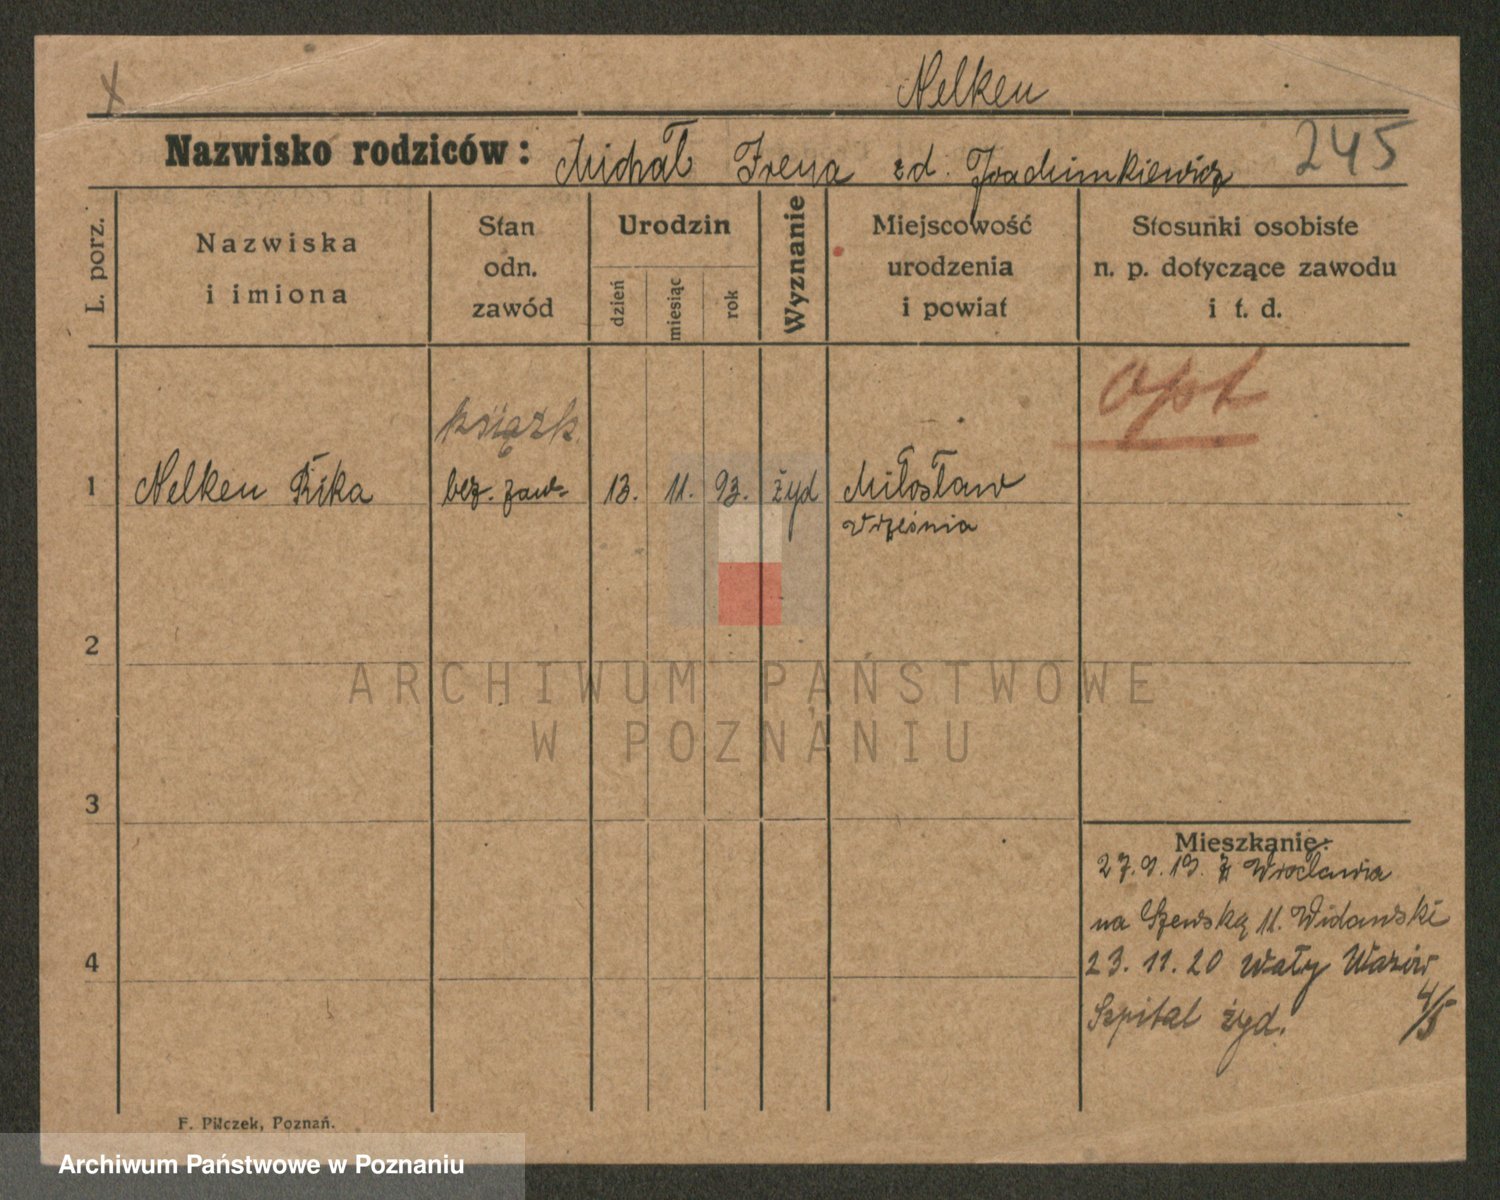 x
Nelken
Nazwisko rodziców: Michał Irena zd. Joachimkiewicz 245
L. porz.
Nazwiska i imiona
Stan odn. zawód
Urodzin
dzień miesiąc rok
Wyznanie
Miejscowość urodzenia i powiat
Stosunki osobiste n. p. dotyczące zawodu i t. d.
opt
książk.
1 Nelken Rika bez. zaw. 13. 11. 93. żyd Miłosław
Września
2
ARCHIWUM PAŃSTWOWE
W POZNANIU
3
Mieszkanie:
27.9.19. z Wrocławia
na Szewską 11. Widawski
4
23. 11. 20 Wały Wazów
Szpital żyd. 4/5
F. Pilczek, Poznań.
Archiwum Państwowe w Poznaniu